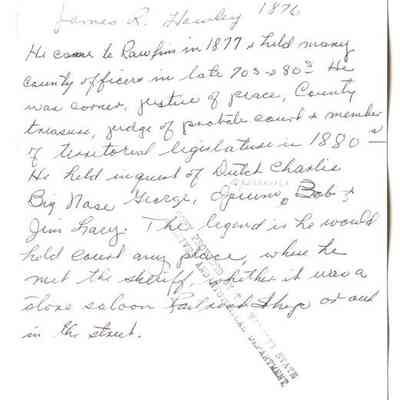 James R. Hawley 1876
He came to Rawlins in 1877 & held many
county officers in late 70s & 80s He
was coroner, justice of peace, County
treasure, judge of probate court & member
of territorial legislature in 1880 -
He held inquest of Dutch Charlie
Big Nase George, Bob &
Jim Lacy. The legend is he would
hold court any place, where he
met the sheriff, whether it was a
store saloon Railroad Shop or out
in the street.
WYOMING STATE
ARCHIVES AND HISTORICAL DEPARTMENT